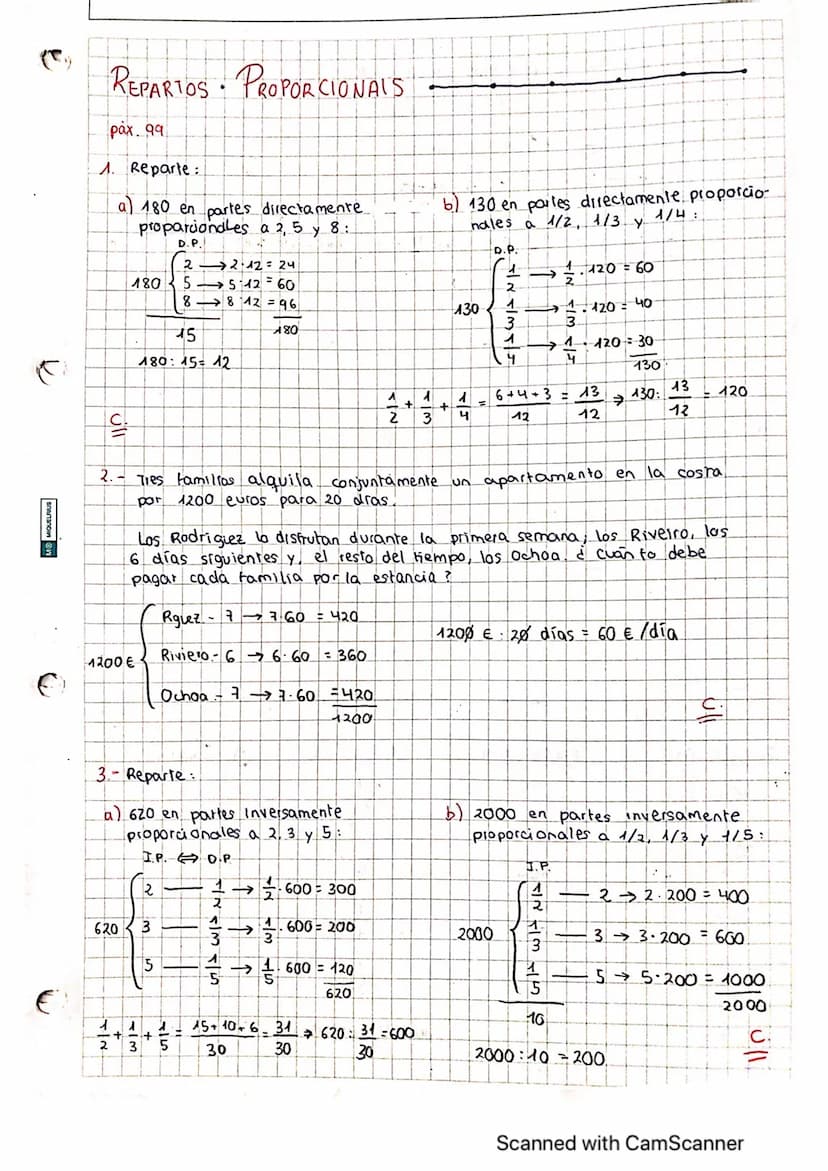 REPARTOS · PROPORCIONAIS
páx. 99
1. Reparte:
a) 180 en partes directamente
proporcionales a 2, 5 y 8:
D.P.
180
2 → 2·12 = 24
5 → 5·12 = 60
8 → 8·12 = 96
15
180
180 : 15 = 12
b) 130 en partes directamente proporcio-
nales a 1/2, 1/3 y 1/4:
D.P.
130
1/2 → 1/2 · 120 = 60
1/3 → 1/3 · 120 = 40
1/4 → 1/4 · 120 = 30
130
1/2 + 1/3 + 1/4 = 6+4+3/12 = 13/12 → 130: 13/12 = 120
C.
2.- Tres familias alquila conjuntamente un apartamento en la costa
por 1200 euros para 20 días.
Los Rodríguez lo disfrutan durante la primera semana; los Riveiro, los
6 días siguientes y, el resto del tiempo, los Ochoa. ¿ Cuánto debe
pagar cada familia por la estancia ?
1200 €
Rguez - 7 → 7·60 = 420
Riviero - 6 → 6·60 = 360
Ochoa - 7 → 7·60 = 420
1200
1200 € : 20 días = 60 € /día
C.
3.- Reparte:
a) 620 en partes inversamente
proporcionales a 2, 3 y 5:
I.P. ⇔ D.P.
620
2 — 1/2 → 1/2 · 600 = 300
3 — 1/3 → 1/3 · 600 = 200
5 — 1/5 → 1/5 · 600 = 120
620
1/2 + 1/3 + 1/5 = 15+10+6/30 = 31/30 → 620 : 31/30 = 600
b) 2000 en partes inversamente
proporcionales a 1/2, 1/3 y 1/5:
I.P.
2000
1/2 — 2 → 2·200 = 400
1/3 — 3 → 3·200 = 600
1/5 — 5 → 5·200 = 1000
10
2000
2000 : 10 = 200
C.
MIQUELRIUS
Scanned with CamScanner